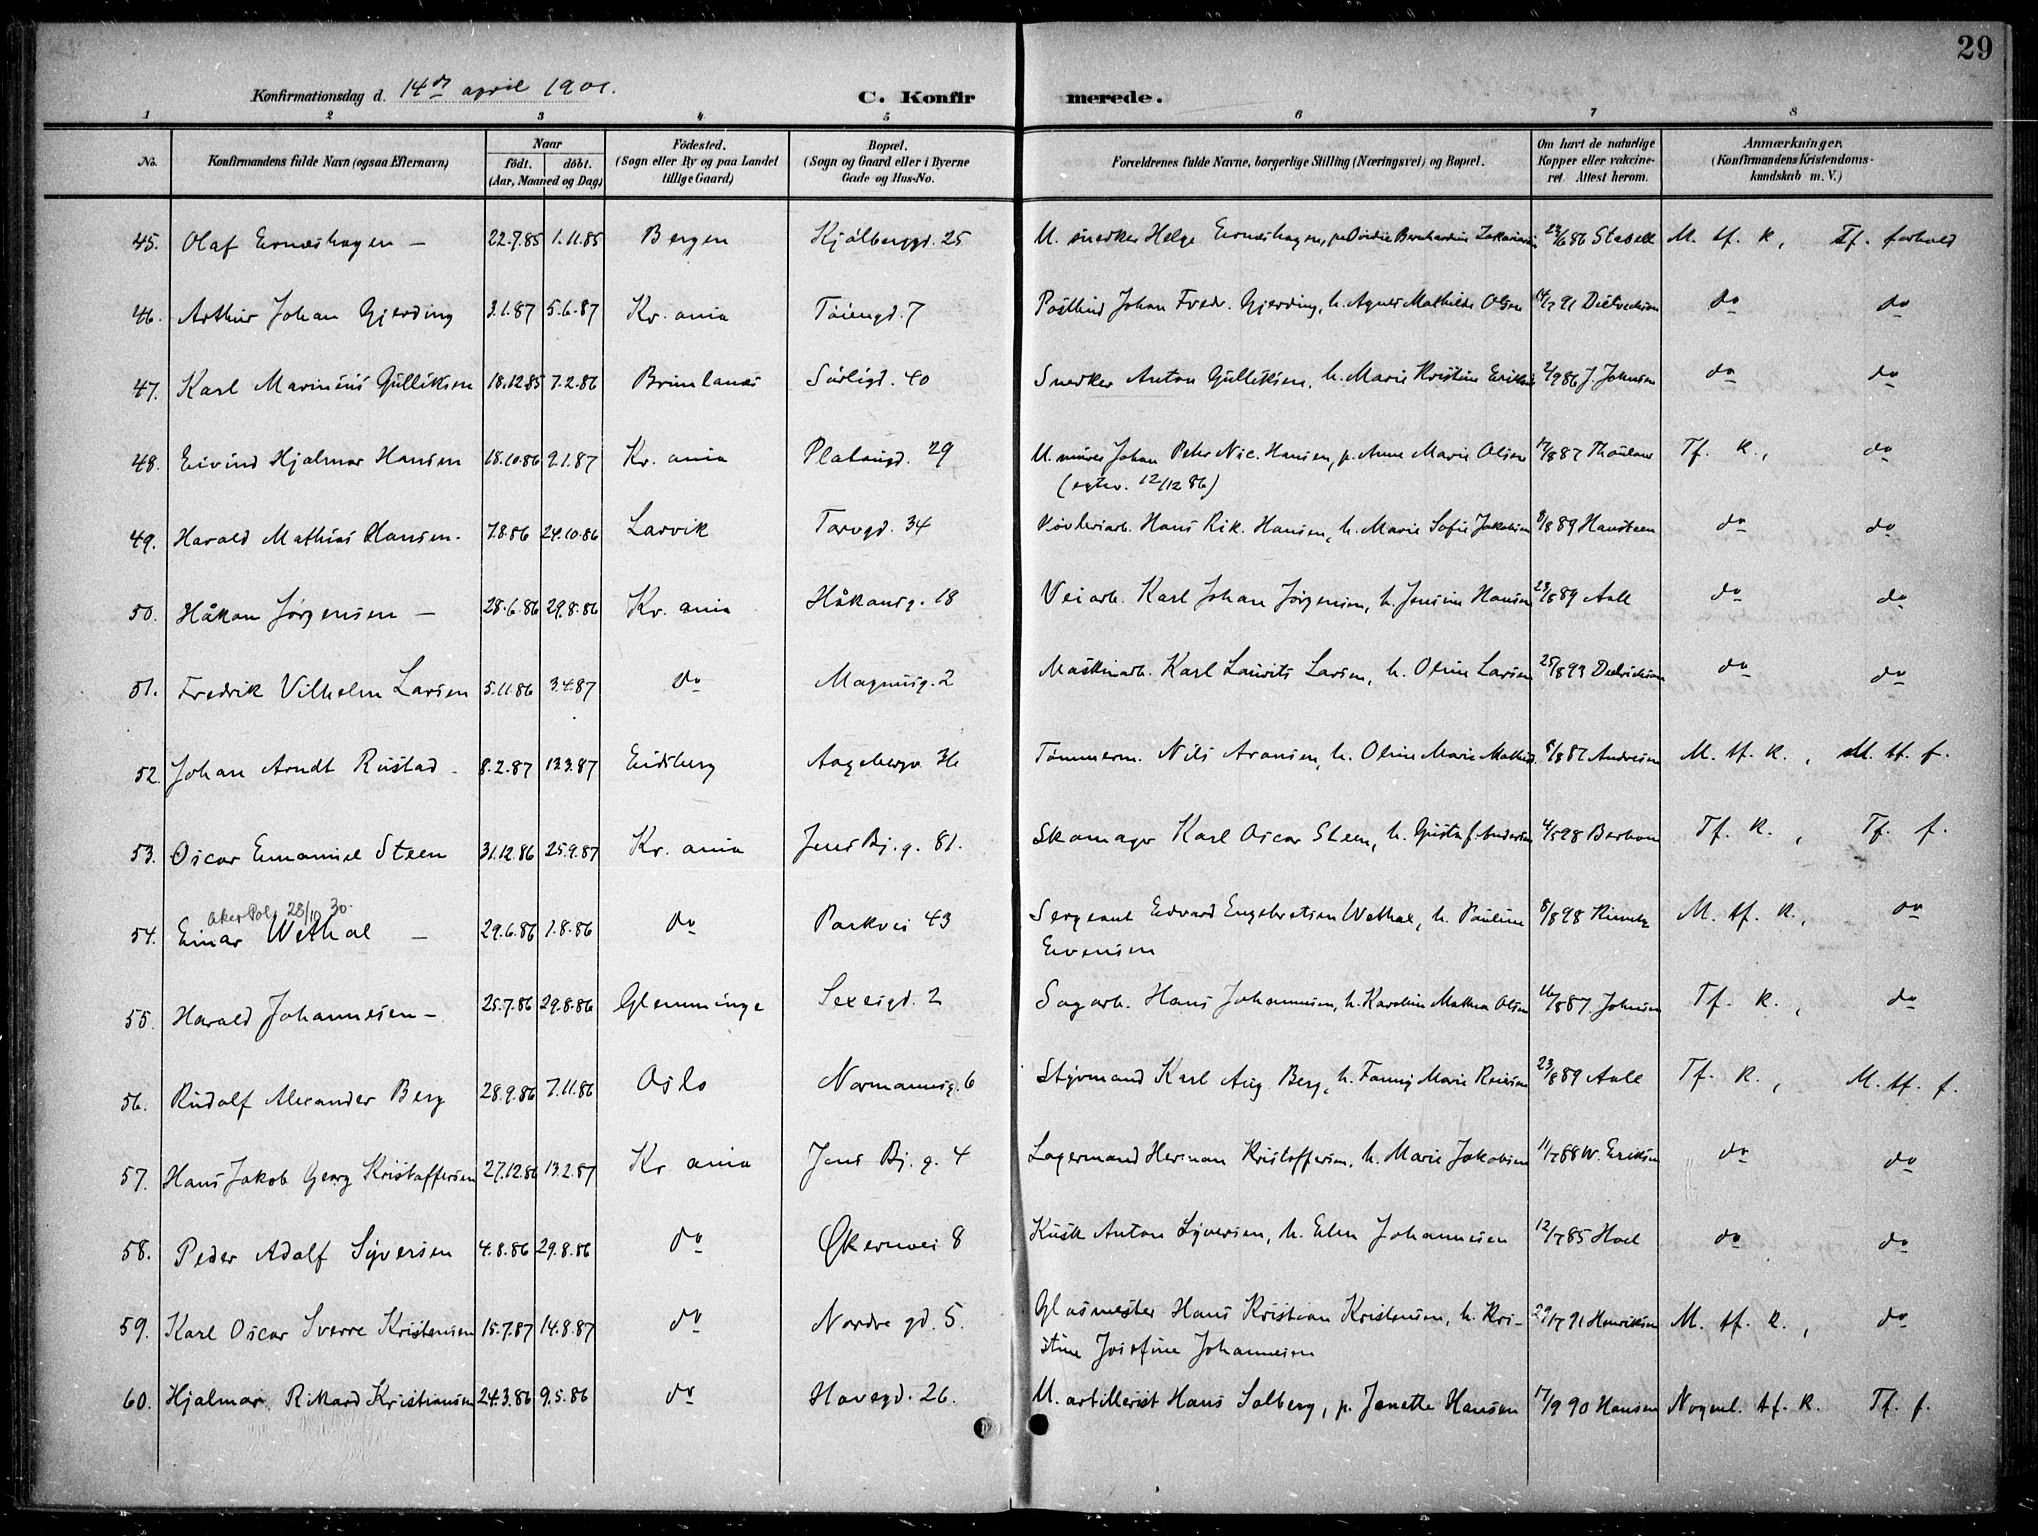 29
Konfirmationsdag d. 14de april 1901.
C. Konfirmerede.
1 2 3 4 5 6 7 8
No. Konfirmandens fulde Navn (ogsaa Efternavn) Naar født. døbt. (Aar, Maaned og Dag) Fødested. (Sogn eller By og paa Landet tillige Gaard) Bopæl. (Sogn og Gaard eller i Byerne Gade og Hus-No. Forældrenes fulde Navne, borgerlige Stilling (Næringsvei) og Bopæl. Om havt de naturlige Kopper eller vakcineret. Attest herom. Anmærkninger, (Konfirmandens Kristendomskundskab m. V.)
45. Olaf Ernæshagen – 22.7.85 1.11.85 Bergen Kjølberggd. 25 U. snedker Helge Ernæshagen, p. Bernhardine 23/6 86 Stabell M. tf. K., Tf. forhold
46. Arthur Johan Gjerding 3.1.87 5.6.87 Kr. ania Tøiengd. 7 Postbud Johan Fredr. Gjerding, h. Agnes Mathilde Olsen 14/7 91 do do
47. Karl Marinius Gulliksen 18.12.85 7.2.86 Brunlanæs Sørligd. 40 Snedker Anton Gulliksen, h. Marie Kristine 2/9 86 J. Johnsen do do
48. Eivind Hjalmar Hansen 18.10.86 9.1.87 Kr. ania Platougd. 29 U. murer Johan Peter Nic. Hansen, p. Anne Marie Olsen 17/8 87 Tf. K., do
(egtev. 12/12 86)
49. Harald Mathias Hansen. 7.8.86 24.10.86 Larvik Torvgd. 34 Hans Rik. Hansen, h. Marie Sofie Jakobsen 8/8 89 Hansteen do do
50. Håkon Jørgensen – 28.6.86 29.8.86 Kr. ania Håkonsg. 18 Veiarb. Karl Johan Jørgensen, h. Jensine Hansen 23/8 89 Aall do do
51. Fredrik Vilhelm Larsen 5.11.86 3.4.87 do Magnusg. 2 Maskinarb. Karl Laurits Larsen, h. Oline Larsen 25/8 93 Dedrichsen do do
52. Johan Arndt Rustad – 8.2.87 13.3.87 Eidsberg Aagebergv. Tømmerm. Nils Aronsen, h. Oline Marie Mathis. 8/8 87 Andresen M. tf. K., M. tf. f.
53. Oscar Emanuel Steen 31.12.86 25.9.87 Kr. ania Jens Bj. g. 81. Skomager Karl Oscar Steen, h. Gustaf. Andersen 4/5 98 Tf. K., Tf. f.
Aker Pol. 28/10 30.
54. Einar Wethal – 29.6.86 1.8.86 do Parkvei 43 Sergeant Edvard Engebretsen Wethal, h. Pauline 8/8 98 M. tf. K., do
Evensen
55. Harald Johannesen – 25.7.86 29.8.86 Glemminge Sexesgd. 2 Sagarb. Hans Johannesen, h. Karoline Mathea Olsen 16/8 87. Johnsen Tf. K., do
56. Rudolf Alexander Berg 28.9.86 7.11.86 Oslo Normannsg. 6 Styrmand Karl Aug. Berg, h. Fanny Marie 23/8 89 Aall Tf. K., M. tf. f.
57. Hans Jakob Georg Kristoffersen 27.12.86 13.2.87 Kr. ania Jens Bj. g. 4 Lagermand Herman Kristoffersen, h. Marie Jakobsen 11/7 88 W. Eriksen do do
58. Peder Adolf Syversen 4.8.86 29.8.86 do Økernvei 8 Kusk Anton Syversen, h. Elen Johannesen 12/7 85 Hoel do do
59. Karl Oscar Sverre Kristensen 15.7.87 14.8.87 do Nordre gd. 5. Glasmester Hans Kristian Kristensen, h. Kri- 29/7 91 Henriksen M. tf. K., do
stine Josefine Johannesen
60. Hjalmar Rikard Kristiansen 24.3.86 9.5.86 do Havegd. 26. U. artillerist Hans Solberg, p. Janette Hansen 17/9 90 Hansen Nogenl. tf. K. Tf. f.